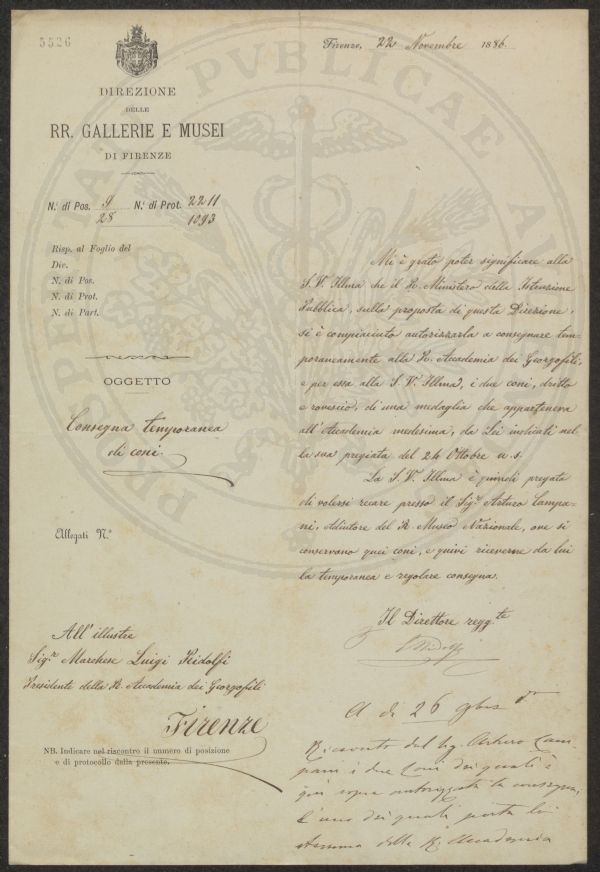 5526
Firenze, 22 Novembre 1886.
DIREZIONE
DELLE
RR. GALLERIE E MUSEI
DI FIRENZE
N.° di Pos. 9 N.° di Prot. 2211
28 1093
Risp. al Foglio del
Div.
N. di Pos.
N. di Prot.
N. di Part.
OGGETTO
Consegna temporanea
di coni
Allegati N.°
All'illustre
Sig.re Marchese Luigi Ridolfi
Presidente della R. Accademia dei Georgofili
Firenze
NB. Indicare nel riscontro il numero di posizione
e di protocollo della presente.
Mi è grato poter significare alla
S. V. Illma che il R. Ministero della Istruzione
Pubblica, sulla proposta di questa Direzione,
si è compiaciuto autorizzarla a consegnare tem=
poraneamente alla R. Accademia dei Georgofili,
e per essa alla S. V. Illma, i due coni, dritto
e rovescio, di una medaglia che apparteneva
all'Accademia medesima, da Lei indicati nel=
la sua pregiata del 24 Ottobre u. s.
La S. V. Illma è quindi pregata
di volersi recare presso il Sig. Arturo Campa=
ni, Adiutore del R. Museo Nazionale, ove si
conservano quei coni, e quivi riceverne da lui
la temporanea e regolare consegna.
Il Direttore regg.te
A dì 26 9bre
Ricevuto dal Sig. Arturo Cam=
pani i due Coni dei quali è
qui sopra autorizzata la consegna,
l'uno dei quali porta lo
stemma della R. Accademia
PROSPERITATI PVBLICAE AV